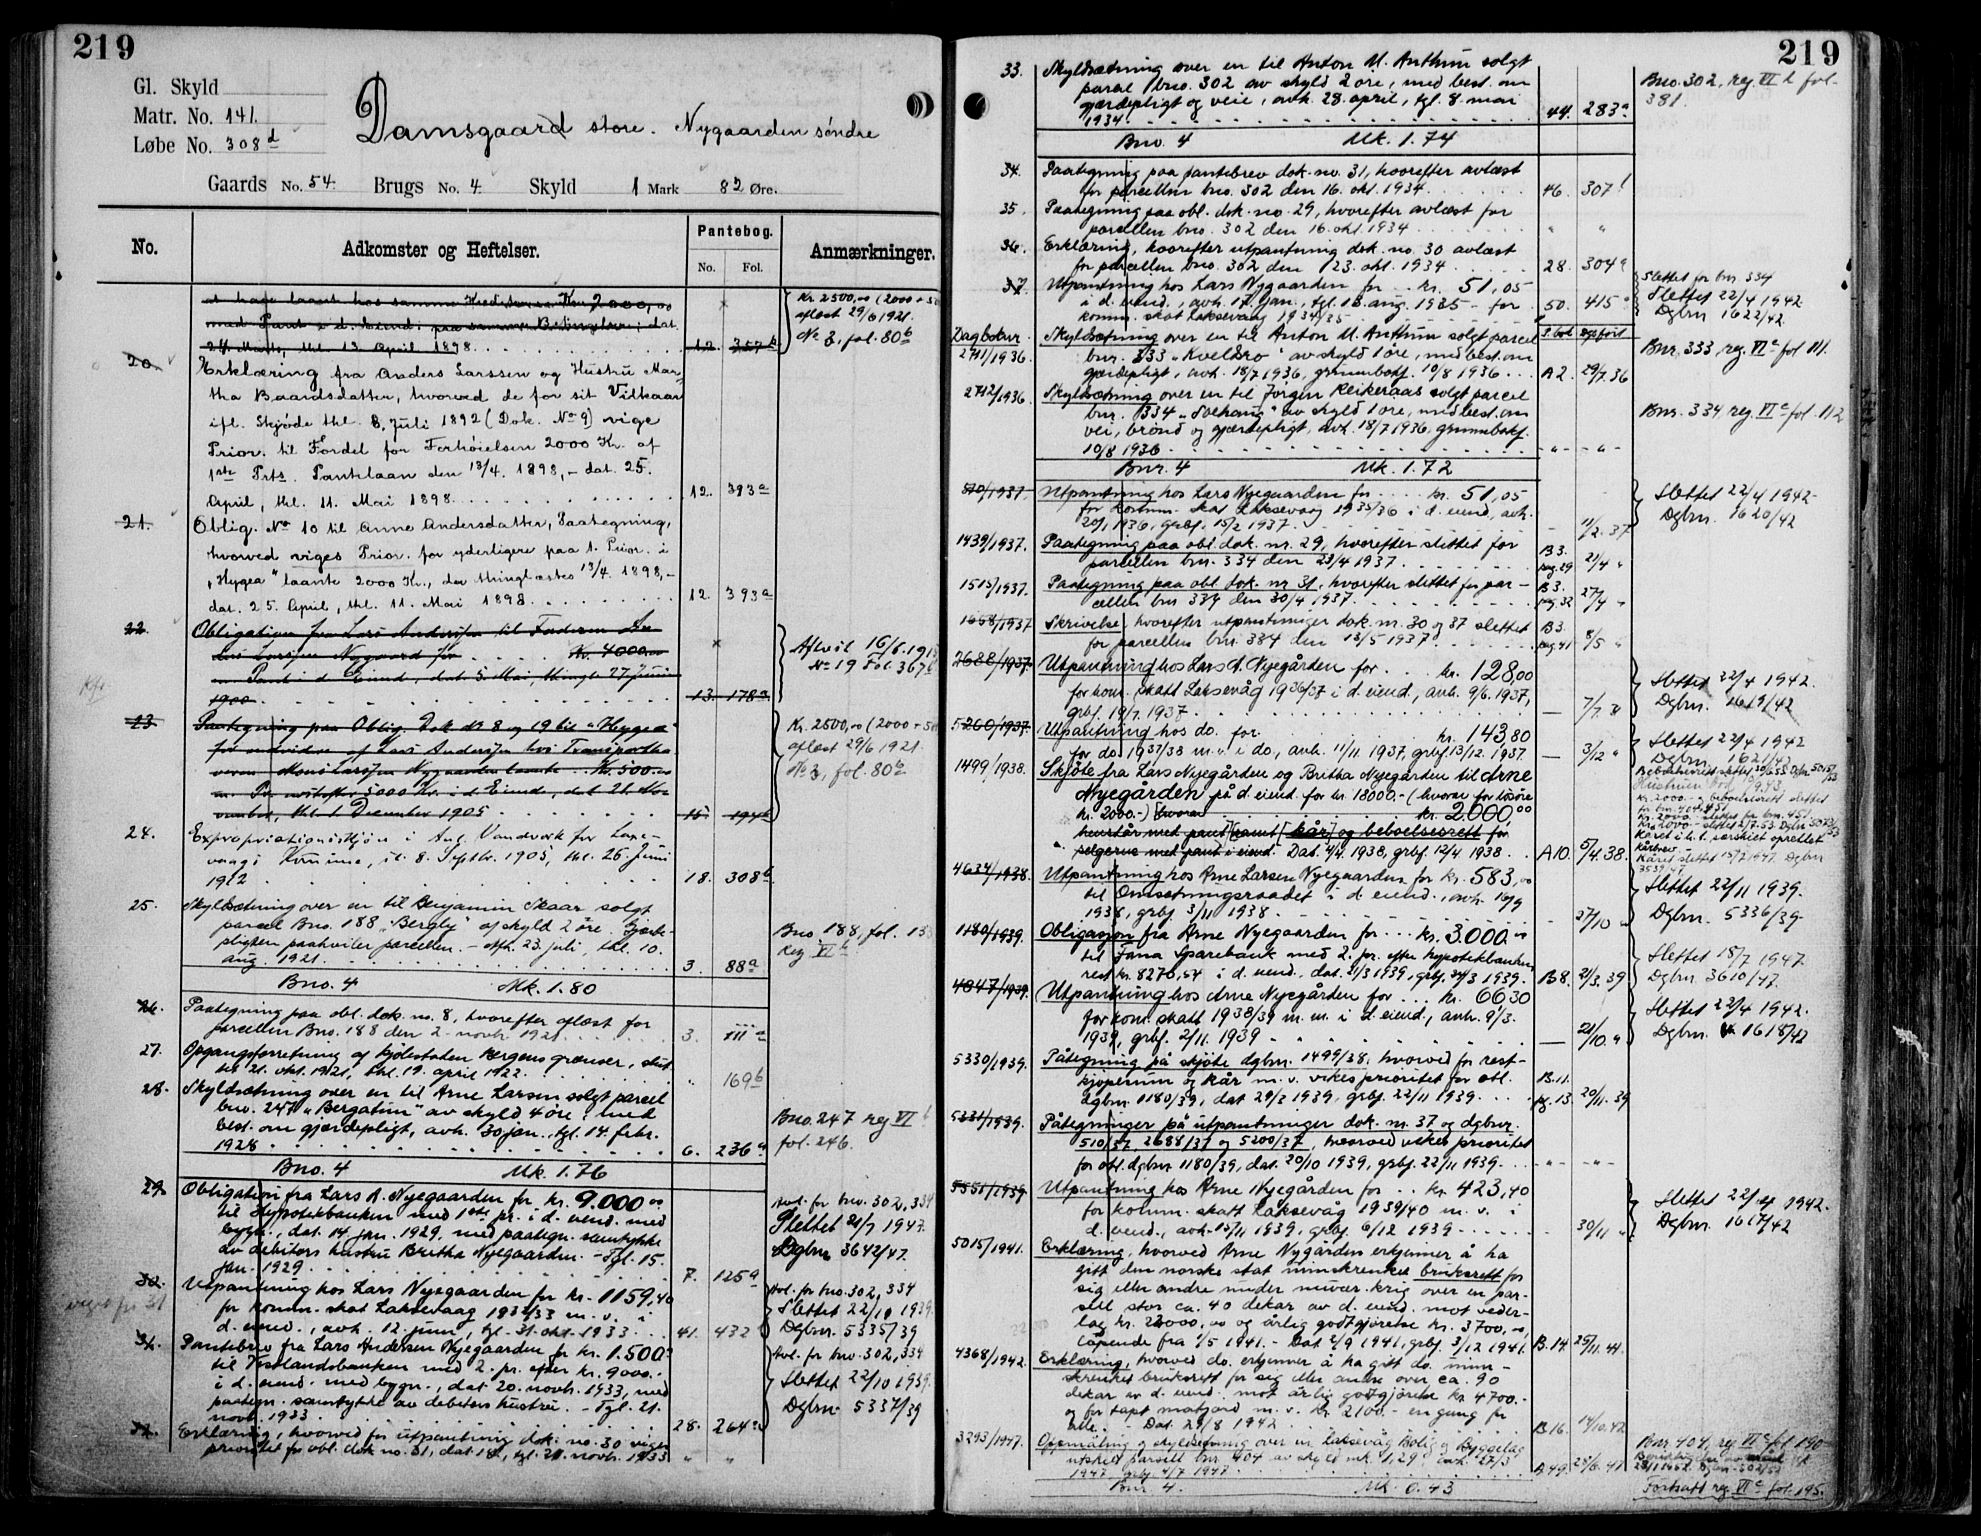 219
Gl. Skyld
Matr. No. 141.
Løbe No. 308 d
Damsgaard store. Nygaarden söndre
Gaards No. 54. Brugs No. 4 Skyld 1 Mark 82 Øre.
No. Adkomster og Heftelser. Pantebog. Anmærkninger.
No. Fol.
at have laant hos samme Kr 2000,00
med Pant i d. Eiend. paa samme Betingelser; dat.
24. Marts, thl. 13 April 1898. 12. 357 b
Kr. 2500,00 (2000 + 500
aflæst 29/6 1921.
No 3, fol. 80 b
20. Erklæring fra Anders Larssen og Hustru Mar-
tha Baardsdatter, hvorved de for sit Vilkaar
ifl. Skjøde thl. 8. Juli 1892 (Dok. No 9) vige
Prior. til Fordel for Forhöielsen 2000 Kr. af
1ste Prts. Pantelaan den 13/4. 1898, - dat. 25.
April, thl. 11. Mai 1898. 12. 393 a
21. Oblig. No 10 til Anne Andersdatter, Paategning,
hvorved viges Prior. for yderligere paa 1. Prior. i
„Hygea" laante 2000 Kr., der thinglæstes 13/4. 1898, -
dat. 25. April, thl. 11. Mai 1898. 12. 393 a
22. Obligation fra Lars Andersen til Faderen An-
ders Larssen Nygaard for Kr. 4000,00
m. Pant i d. Eiend., dat. 5 Mai, thingl. 27 Juni
1900 13. 178 a
Aflyst 16/6. 1915
No 19 Fol. 367 b
23. Paategning paa Oblig. Dok No 8 og 19 til "Hygea"
Kr. 500.00
m. Pr. næstefter 5000 Kr. i d. Eiend., dat. 21. No-
vember, thl. 1 December 1905 15. 194 b
Kr. 2500,00 (2000 + 500
aflæst 29/6 1921.
No 3, fol. 80 b
24. Expropriationsskjøn i Anl. Vandverk for Laxe-
vaag Kommune, dat. 8. Septbr. 1905, thl. 26. Juni
1912 18. 308 b
25. Skyldsætning over en til Benjamin Skaar solgt
parcel Bno. 188 „Bergly" af skyld 2 öre. Gjærde-
pligten paahviler parcellen. - Afh. 23. juli, thl. 10.
aug. 1921. 3. 88 a
Bno. 188, fol. 133
Reg VI b
Bno. 4 Mk. 1.80
26. Paategning paa obl. dok. no. 8, hvorefter aflæst for
parcellen Bno. 188 den 2. novbr. 1921. 3. 111 a
27. Opgangsforretning af kjöbstaden Bergens grænser, slut-
tet 21. okt. 1921, thl. 19. april 1922. " 169 b
28. Skyldsætning over en til Arne Larsen solgt parcel
bno. 247 „Bergatun" av skyld 4 øre, med
best. om gjærdepligt, avh. 30 jan., tgl. 14. febr.
1928 6. 236 a
Bno. 247 reg VI b
fol. 246.
Bno. 4 Mk. 1.76
29. Obligation fra Lars A. Nyegaarden for kr. 9.000 00
til Hypotekbanken med 1ste pr. i d. eiend. med
bygn., dat. 14. jan. 1929, med paategn. samtykke
av debitors hustru Britha Nyegaarden. - Tgl. 15.
jan. 1929 7. 125 a
Avl. for bno. 302, 334
Slettet 21/7 1947.
Dgbnr 3642/47.
30. Utpantning hos Lars Nyegaarden for kr. 1159,40
for komm. skat Laksevaag 1932/33 m. v. i
d. eiend., avh. 12. juni, tgl. 31. okt. 1933 41. 432 b
Avl. for bno. 302, 334
Slettet 22/10 1939.
Dgbnr. 5335/39
31. Pantebrev fra Lars Andersen Nyegaarden for kr. 1.500 00
til Vestlandsbanken med 2. pr. efter kr. 9000.-
i d. eiend. med bygn., dat 20. novbr. 1933, med
paategn. samtykke av debitors hustru. - Tgl. 21.
novb. 1933 28. 264 a
Avl. for bno. 302, 334
Slettet 22/10 1939.
Dgbnr 5337/39
32. Erklæring, hvorved for utpantning dok. no. 30 viges
prioritet for obl. dok no. 31, dat 18., tgl. 21. novbr. 1933 " "
219
33. Skyldsætning over en til Anton M. Anthun solgt
parcel bno. 302 av skyld 2 öre, med best. om
gjærdepligt og veie, avh. 28. april, tgl. 8. mai
1934. 44. 283 a
Bno. 302, reg. VI b fol.
381.
Bno. 4 Mk. 1.74
34. Paategning paa pantebrev dok. no. 31, hvorefter avlæst
for parcellen bno. 302 den 16. okt. 1934 46. 307 b
35. Paategning paa obl. dok. no. 29, hvorefter avlæst for
parcellen bno. 302 den 16. okt. 1934 " "
36. Erklæring, hvorefter utpantning dok. no. 30 avlæst
for parcellen bno. 302 den 23. okt. 1934 28. 304 a
37. Utpantning hos Lars Nygaarden for kr. 51,05
i d. eiend., avh. 17. jan., tgl. 13. aug. 1935 - for
komm. skat Laksevaag 1934/35 50. 415
Slettet for bnr. 334
Slettet 22/4 1942
Dgbnr. 1622/42.
Dagboknr.
2711/1936. Skyldsetning over en til Anton M. Anthun solgt parcel
bnr. 333 „Kveldsro" av skyld 1 øre, med best. om
gjærdepligt, avh. 18/7 1936, grunnbokf. 10/8 1936 A 2. 29/7.36
Bnr. 333, reg. VI c fol 111.
2712/1936. Skyldsetning over en til Jörgen Reikeraas solgt parcel
bnr. 334 „Solhaug" av skyld 1 øre, med best. om
vei, brönd og gjærdepligt, avh. 18/7 1936, grunnbokf.
10/8 1936 - " - - " -
Bnr. 334 reg. VI c fol. 112
Bnr. 4 Mk. 1.72
510/1937. Utpantning hos Lars Nyegaarden for kr. 51,05
for komm. skat Laksevaag 1935/36 i d. eiend., avh.
20/1 1936, grbf. 15/2 1937 - 11/2.37
Slettet 22/4 1942-
Dgbnr. 1620/42
1439/1937. Paategning paa obl. dok. nr. 29, hvorefter slettet for
parcellen bnr. 334 den 23/4 1937 B 3. pag. 29 21/4 "
1515/1937. Paategning paa obl. dok. nr 31, hvorefter slettet for par-
cellen bnr 334 den 30/4 1937 B 3. pag. 32 27/4 "
1658/1937 Skrivelse, hvorefter utpantninger dok. nr. 30 og 37 slettet
for parcellen bnr. 334 den 13/5 1937 B 3. pag. 41 8/5 "
2688/1937. Utpantning hos Lars A. Nyegården for kr. 128,00
for kom. skatt Laksevåg 1936/37 i d. eiend., avh. 9/6. 1937,
grbf. 19/7. 1937 - 7/7. "
Slettet 22/4 1942.
Dgbnr. 1619/42
5260/1937. Utpantning hos do. for kr. 143,80
for do. 1937/38 m. v. i do., avh. 11/11 1937, grbf. 13/12. 1937 - 3/12 "
Slettet 22/4 1942
Dgbnr. 1621/42
1499/1938. Skjöte fra Lars Nyegården og Britha Nyegården til Arne
Nyegården på d. eiend. for kr. 18000.- (hvorav for lösöre
kr. 2000.-) hvorav kr. 2.000,00
henstår med pant samt kår og beboelsesrett for
selgerne med pant i eiend. Dat. 4/4 1938, grbf. 12/4 1938. A 10. 5/4.38.
Kåret slettet 15/7 1947. Dgbnr
3539.47.
4634/1938. Utpantning hos Arne Larsen Nyegaarden for kr. 583,00
til Omsetningsraadet i d. eiend., avh. 16/9
1938, grbf. 3/11 1938 - 27/10 "
Slettet 22/11 1939.
Dgbnr. 5336/39-
1180/1939. Obligasjon fra Arne Nyegaarden for kr. 3.000.00
til Fana Sparebank med 2. pr. efter hypotekbanken,
rest kr. 8276,54 i d. eiend., dat. 21/3 1939, grbf. 24/3 1939. B 8. 21/3.39
Slettet 18/7 1947.
Dgbnr. 3610/47.
4847/1939. Utpantning hos Arne Nyegården for kr. 66,30
for kom. skatt 1938/39 m. m. i d. eiend., avh. 9/3.
1939, grbf. 2/11. 1939 - 21/10. "
Slettet 22/4 1942.
Dgbnr. 1618/42
5330/1939. Påtegning på skjöte dgbnr. 1499/38, hvorved for rest-
kjöpesum og kår m. v. vikes prioritet for obl.
dgbnr. 1180/39, dat 29/3 1939, grbf. 22/11 1939. B.11. pg. 13 20/11.39
5331/1939. Påtegninger på utpantninger dok. nr. 37 og dgbnr.
510/37, 2688/37 og 5260/37, hvorved vikes prioritet
for obl. dgbnr 1180/39, dat. 20/10 1939, grbf. 22/11 1939. - " - - " -
5551/1939. Utpantning hos Arne Nyegården for kr. 423,40
for komm. skatt Laksevåg 1939/40 m. v. i
d. eiend., avh. 15/11 1939, grbf. 6/12 1939 - 30/11 "
Slettet 22/4 1942.
Dgbnr. 1617/42
5015/1941. Erklæring, hvorved Arne Nygården erkjenner å ha
gitt den norske stat innskrenket bruksrett for
sig eller andre under nuvær. krig over en par-
sell stor ca. 40 dekar av d. eiend. mot veder-
lag kr. 23000,00 og årlig godtgjörelse kr. 3700,00,
löpende fra 1/5 1941. - Dat. 2/9 1941, grbf. 3/12 1941. B. 14. 25/11.41.
4368/1942. Erklæring, hvorved do. erkjenner å ha gitt do. inn-
skrenket bruksrett for sig eller andre over ca. 90
dekar av d. eiend. mot årlig godtgjörelse kr. 4700.-
og for tapt matjord m. v. kr. 2100.- en gang for
alle. Dat. 29/8 1942 B.16. 14/10.42
3293/1947. Oppmåling og skyldsetning over en Laksevåg Bolig og Byggelag
utskilt parsell bnr. 404 av skyld mk. 1,29, avh. 27/3
1947, grbf. 4/7 1947. A.49. 25/6.47
Bnr 404, reg. VI c fol 190
Bnr. 4. Mk. 0.43
Fortsatt reg VI c fol. 195.